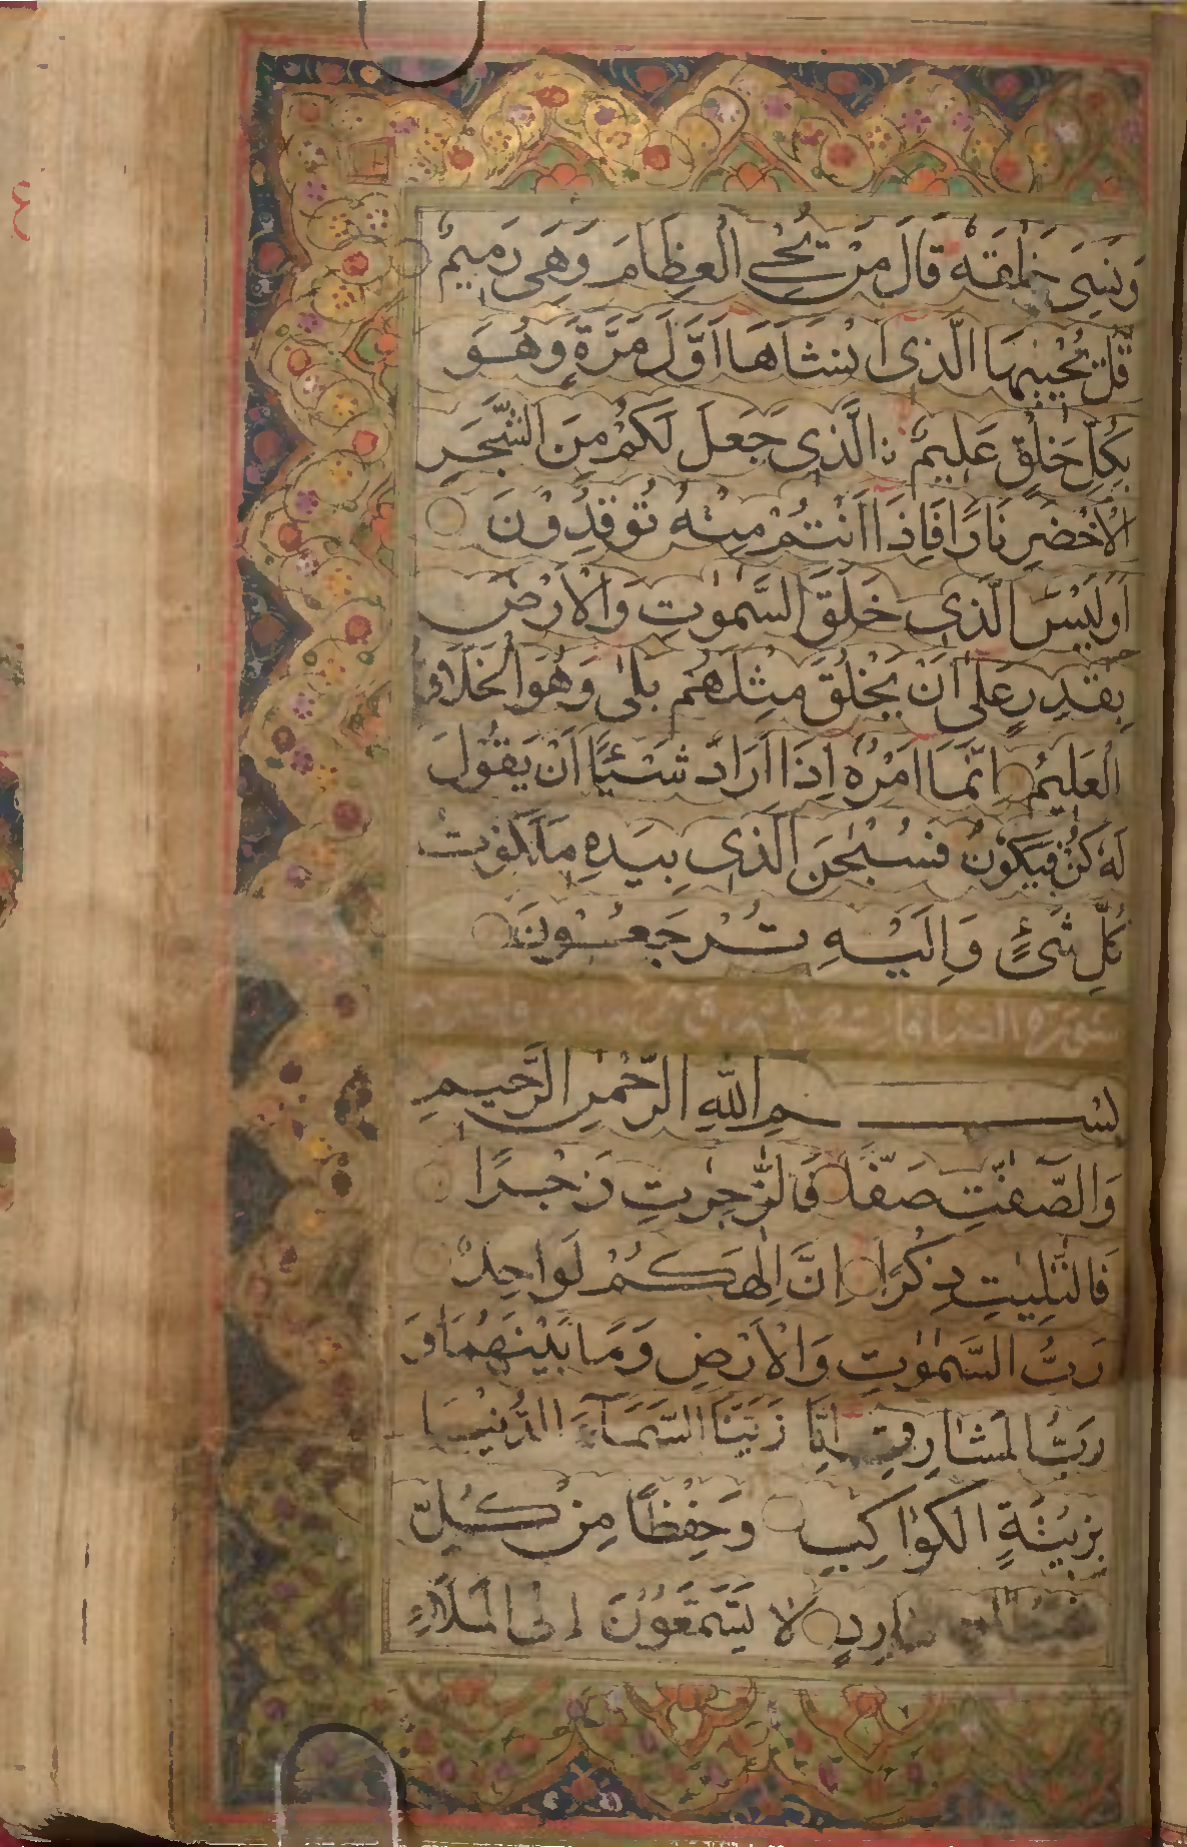 وَنَسِيَ خَلْقَهٗ قَالَ مَنْ يُّحْيِ الْعِظَامَ وَهِيَ رَمِيمٌ
قُلْ يُحْيِيهَا الَّذِى اَنْشَاَهَا اَوَّلَ مَرَّةٍ وَهُوَ
بِكُلِّ خَلْقٍ عَلِيمٌ الَّذِى جَعَلَ لَكُمْ مِنَ الشَّجَرِ
الْاَخْضَرِ نَارًا فَاِذَا اَنْتُمْ مِنْهُ تُوْقِدُوْنَ
اَوَلَيْسَ الَّذِى خَلَقَ السَّمٰوٰتِ وَالْاَرْضَ
بِقٰدِرٍ عَلٰى اَنْ يَخْلُقَ مِثْلَهُمْ بَلٰى وَهُوَ الْخَلَّاقُ
الْعَلِيمُ اِنَّمَا اَمْرُهٗ اِذَا اَرَادَ شَيْئًا اَنْ يَقُوْلَ
لَهٗ كُنْ فَيَكُوْنُ فَسُبْحٰنَ الَّذِى بِيَدِهٖ مَلَكُوْتُ
كُلِّ شَىْءٍ وَاِلَيْهِ تُرْجَعُوْنَ
سُوْرَة الصافات
بِسْمِ اللّٰهِ الرَّحْمٰنِ الرَّحِيمِ
وَالصّٰٓفّٰتِ صَفًّا فَالزّٰجِرٰتِ زَجْرًا
فَالتّٰلِيٰتِ ذِكْرًا اِنَّ اِلٰهَكُمْ لَوَاحِدٌ
رَبُّ السَّمٰوٰتِ وَالْاَرْضِ وَمَا بَيْنَهُمَا وَ
رَبُّ الْمَشَارِقِ اِنَّا زَيَّنَّا السَّمَآءَ الدُّنْيَا
بِزِيْنَةِ الْكَوَاكِبِ وَحِفْظًا مِنْ كُلِّ
مَارِدٍ لَا يَسَّمَّعُوْنَ اِلَى الْمَلَاِ